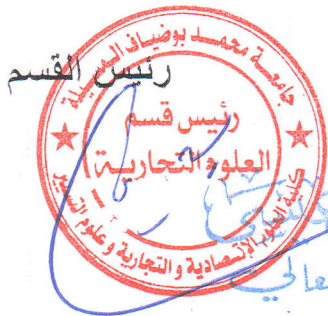 رئيس القسم
جامعة محمد بوضياف المسيلة
رئيس قسم
العلوم التجارية
كلية العلوم الإقتصادية و التجارية و علوم التسيير